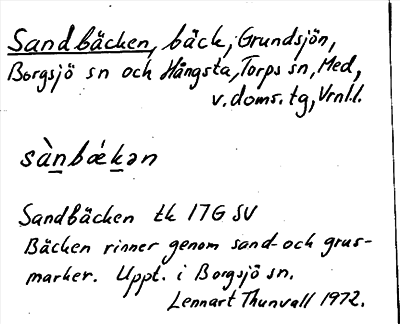 Sandbäcken, bäck, Grundsjön,
Borgsjö sn och Hångsta, Torps sn, Med,
v. doms. tg, Vrnl.l.
sàn̲bǽk̲ən
Sandbäcken tk 17G SV
Bäcken rinner genom sand- och grus-
marker. Uppt. i Borgsjö sn.
Lennart Thunvall 1972.